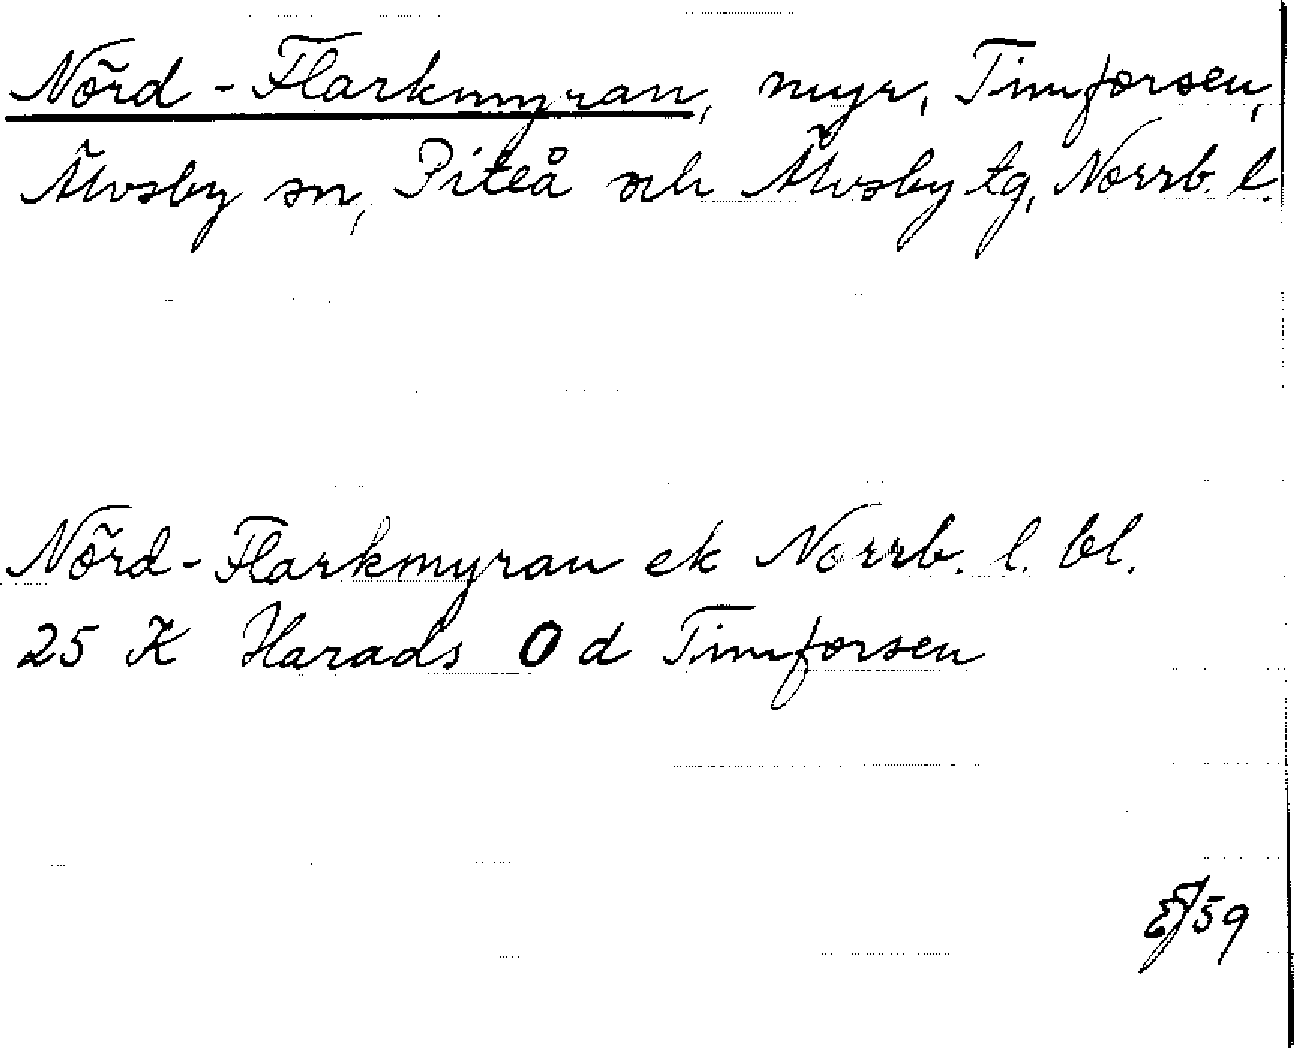 Nörd-Flarkmyran, myr, Timforsen,
Älvsby sn, Piteå och Älvsby tg, Norrb. l.
Nörd-Flarkmyran ek Norrb. l. bl.
25 K Harads 0 d Timforsen
/59